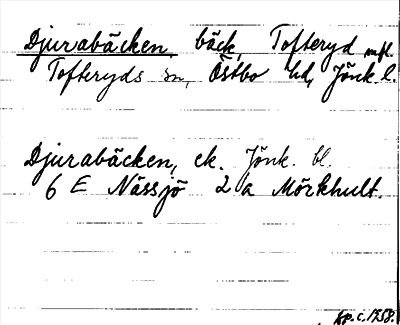 Djurabäcken, bäck, Tofteryd mfl.
Tofteryds sn, Östbo hd, Jönk. l.
Djurabäcken, ek. Jönk. bl.
6 E Nässjö 2 a Mörkhult.
kp. c. 1758.